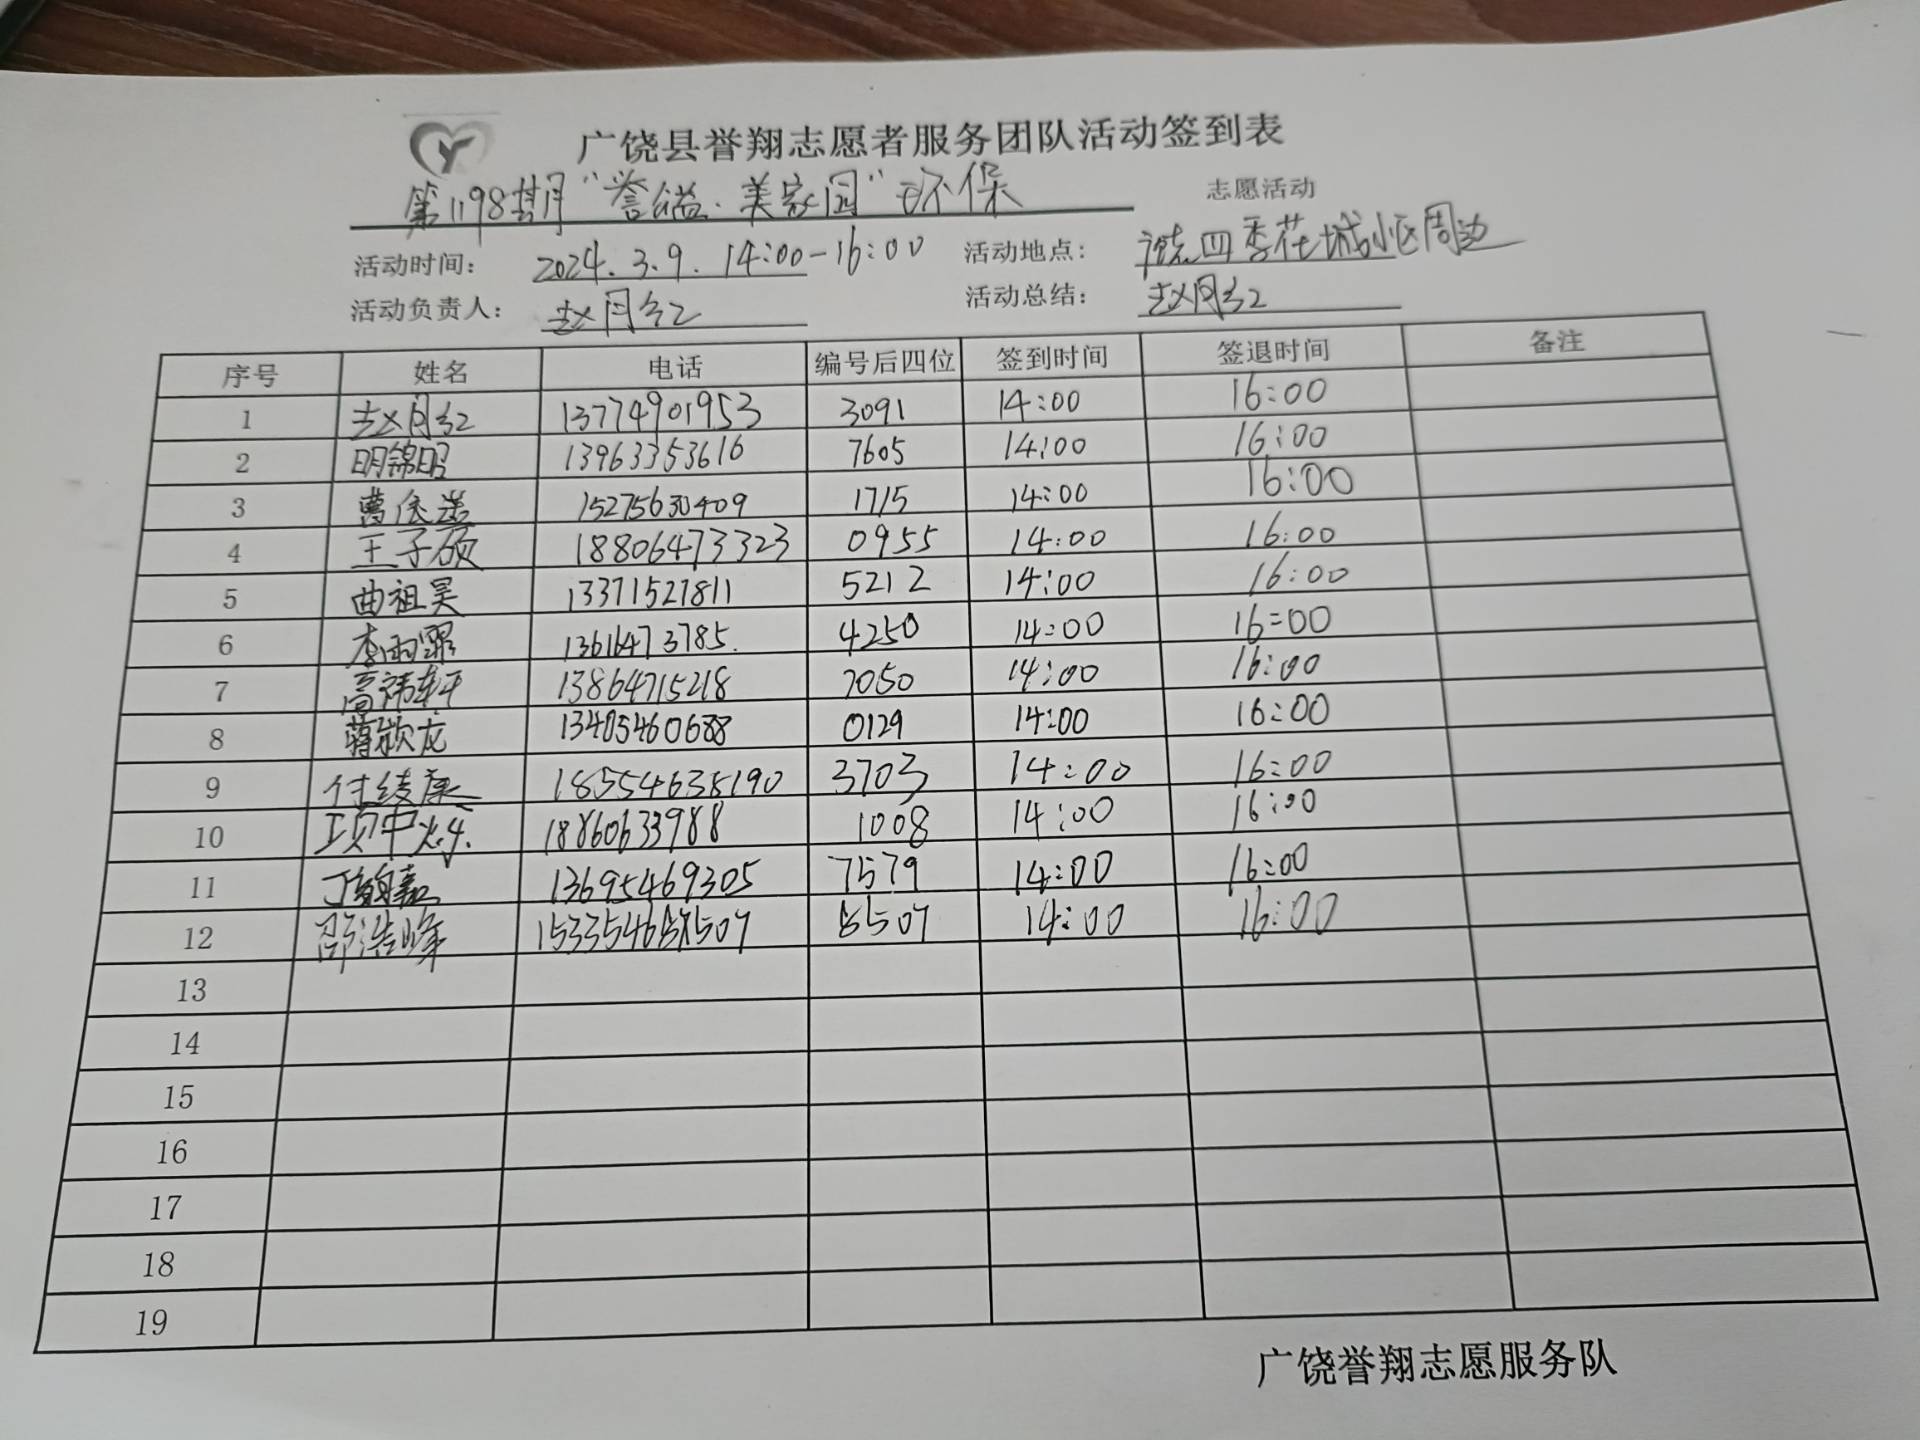 广饶县誉翔志愿者服务团队活动签到表
第1198期"誉溢·美家园"环保 志愿活动
活动时间: 2024.3.9. 14:00-16:00 活动地点: 四季花城小区周边
活动负责人: 赵月红 活动总结: 赵月红
序号 姓名 电话 编号后四位 签到时间 签退时间 备注
1 赵月红 13774901953 3091 14:00 16:00
2 明锦昭 13963353616 7605 14:00 16:00
3 曹依诺 15275630409 1715 14:00 16:00
4 王子硕 18806473323 0955 14:00 16:00
5 曲祖昊 13371527811 5212 14:00 16:00
6 李雨霏 13616473785. 4250 14:00 16:00
7 高祎轩 13864715218 7050 14:00 16:00
8 蒋 龙 13405460688 0129 14:00 16:00
9 付绫康 18554638190 3703 14:00 16:00
10 项中 18860633988 1008 14:00 16:00
11 丁 嘉 13695469305 7579 14:00 16:00
12 邵浩峰 8507 14:00 16:00
13
14
15
16
17
18
19
广饶誉翔志愿服务队